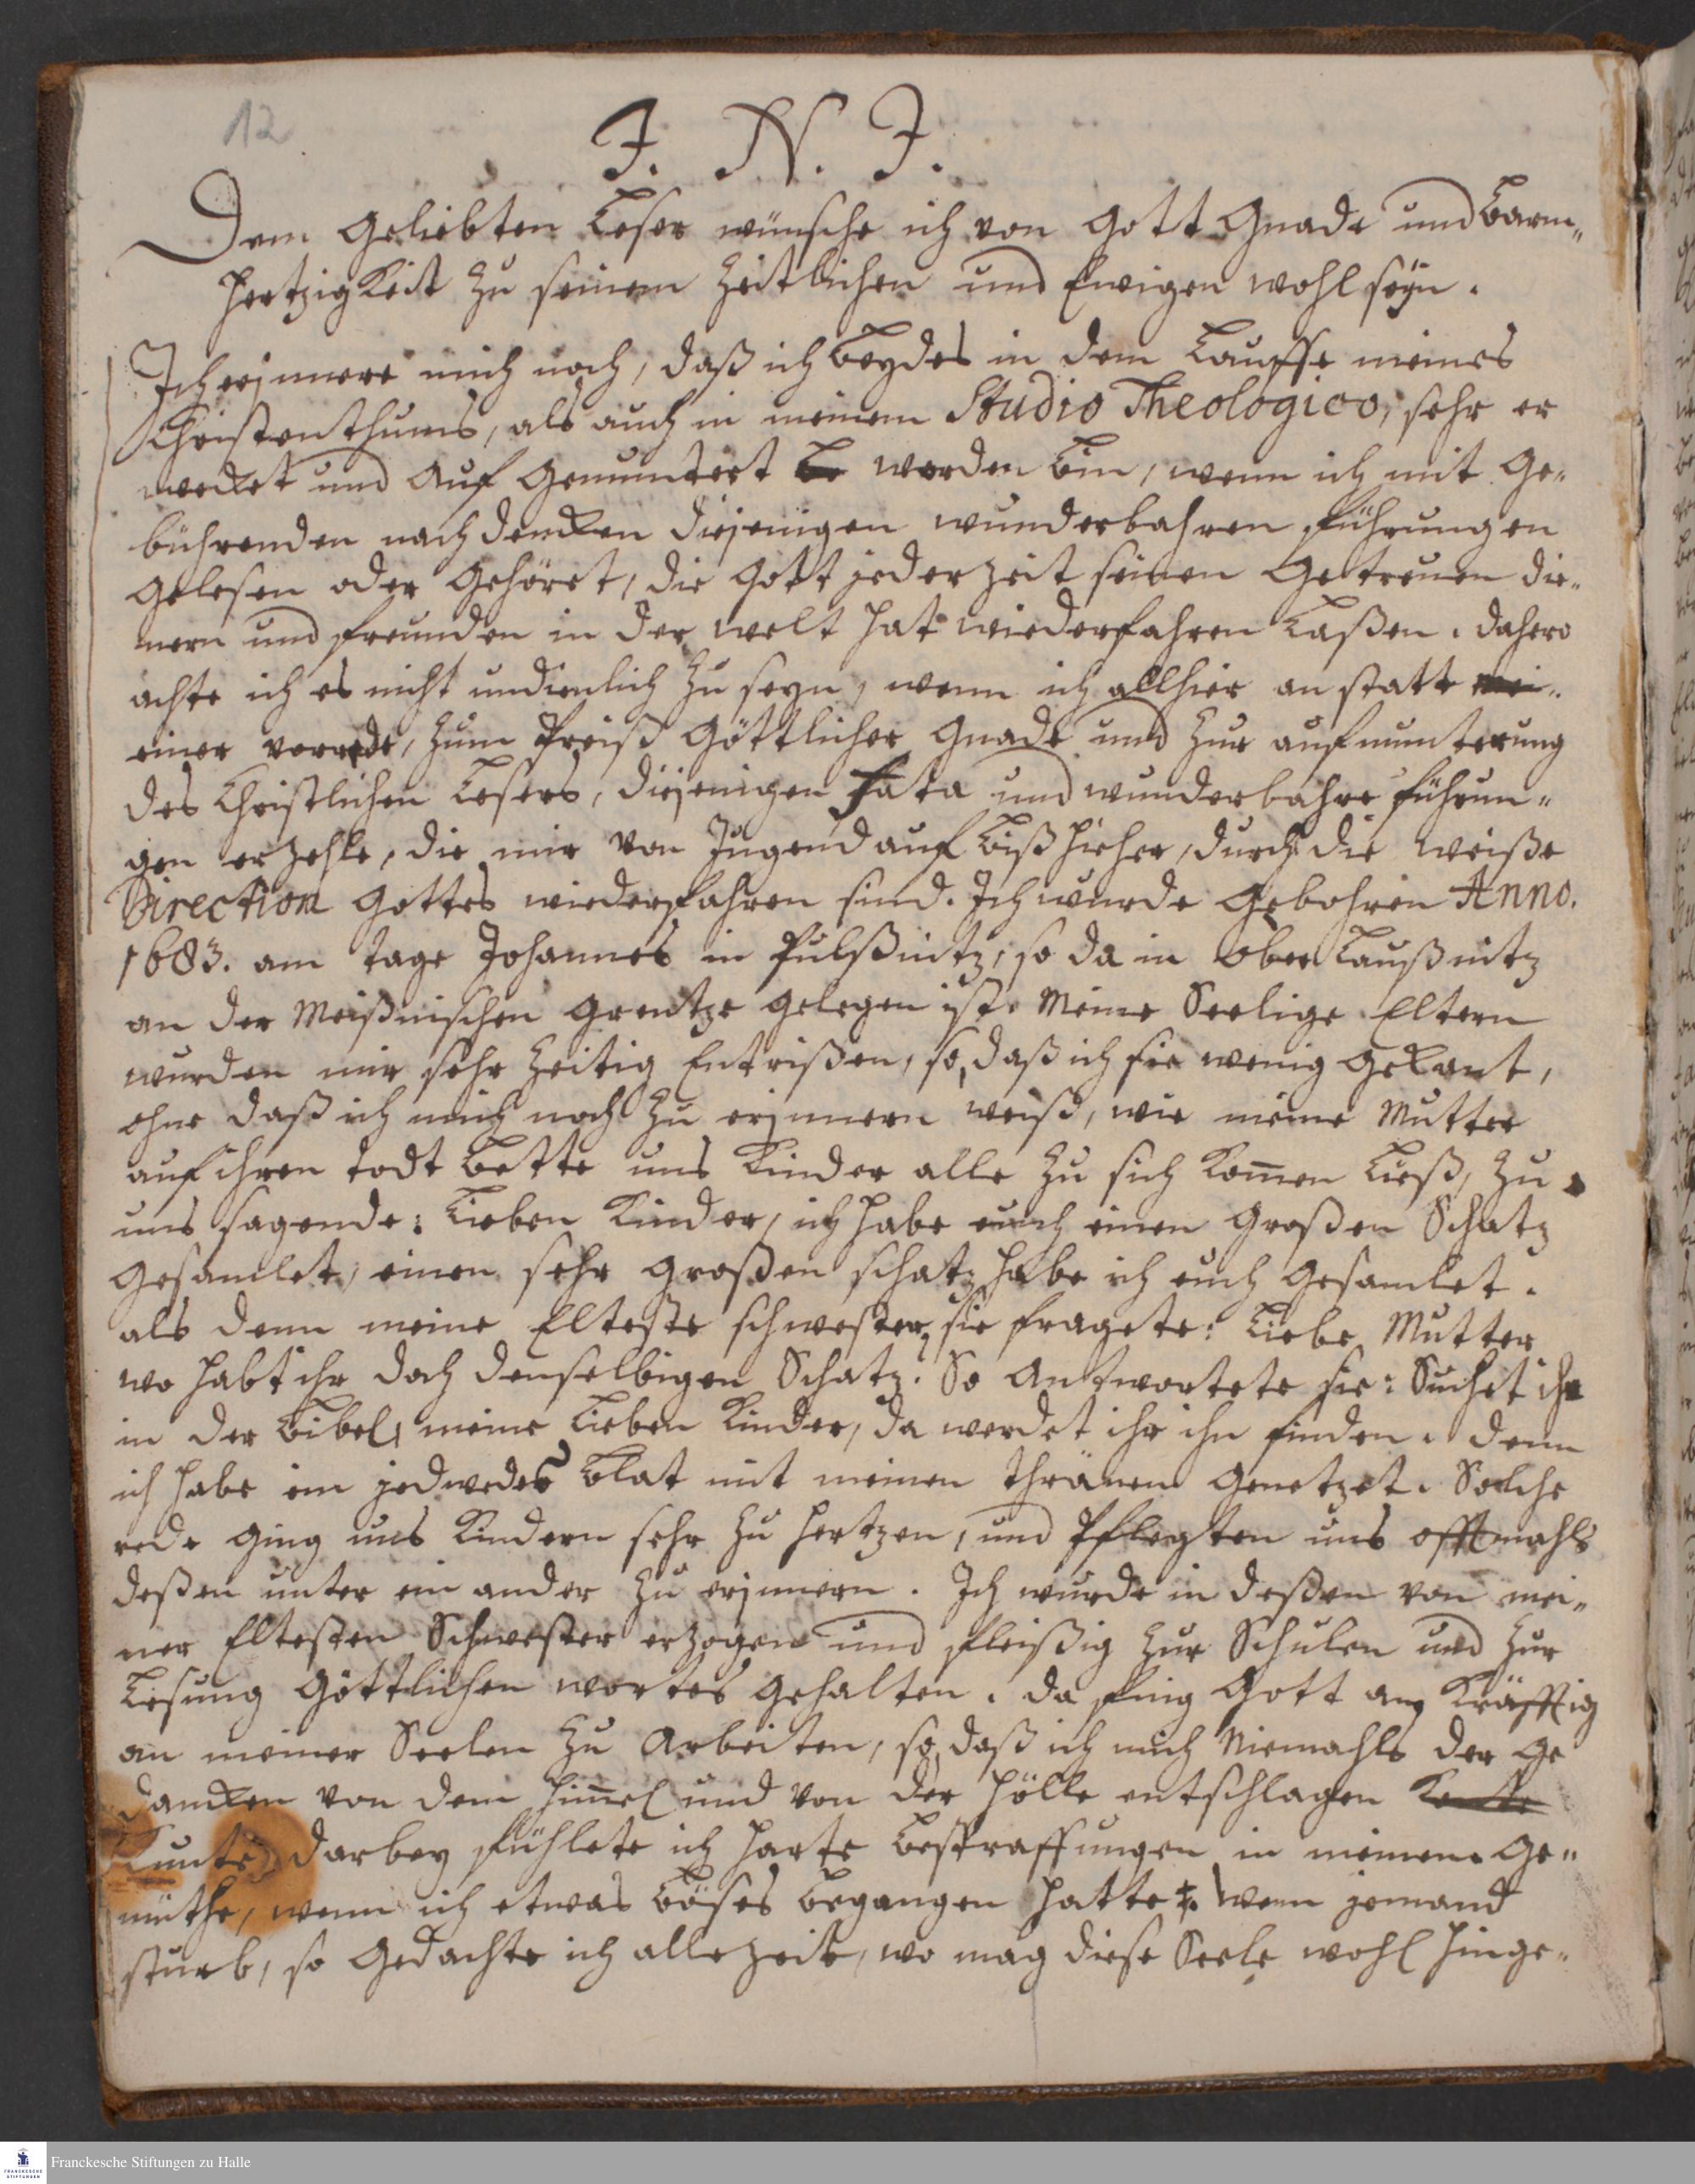 12
J. N. J.
Dem Geliebten Leser wünsche ich von Gott Gnade und Barm„
hertzigkeit zu seinem Zeitlichen und Ewigen wohl seÿn.
Ich erjnnere mich noch, daß ich beydes in dem Lauffe meines
Christenthums, als auch in meinem Studio Theologico, sehr er
wecket und Auf gemuntert worden bin, wenn ich mit Ge„
bührenden nachdencken diejenigen wunderbahren führungen
gelesen oder gehöret, die Gott jederzeit seinen Getreuen die„
nern und freunden in der welt hat wiederfahren Laßen. dahero
achte ich es nicht undienlich zu seyn, wenn ich allhier an statt mei„
einer vorrede, zum Preiß Göttlicher Gnade und zur aufmunterung
des Christlichen Lesers, diejenigen Fata und wunderbahre führun„
gen erzehle, die mir von Jugend auf biß hieher, durch die weiße
Direction Gottes wiederfahren sind. Ich wurde Gebohren Anno.
1683. am tage Johannes in Pulßnitz, so da in Ober Laußnitz
an der Meißnischen Grentze gelegen ist. Meine Seelige Eltern
wurden mir sehr Zeitig Entrißen, so, daß ich sie wenig Gekant,
ohne daß ich mich noch zu erjnnern weiß, wie meine Mutter
auf ihren todt bette uns Kinder alle zu sich kom̄en Ließ, zu
uns sagende: Lieben Kinder, ich habe euch einen Großen Schatz
Gesamlet, einen sehr großen schatz habe ich euch Gesamlet.
als denn meine Elteste schwester, sie fragete: Liebe Mutter
wo habt ihr doch denselbigen Schatz. So Antwortete sie: Suchet ihn
in der Bibel, meine Lieben Kinder, da werdet ihr ihn finden. denn
ich habe ein jedwedes blat mit meinen thränen Genetzet. Solche
rede ging uns Kindern sehr zu hertzen, und Pflegten uns offtmahls
deßen unter ein ander zu erjnnern. Ich wurde in deßen von mei„
ner Eltesten Schwester erzogen und fleißig zur Schulen und zur
Lesung Göttlichen wortes gehalten. da fing Gott an, Kräfftig
an meiner Seelen zu Arbeiten, so, daß ich mich Niemahls der Ge
dancken von dem him̄el und von der hölle entschlagen Konte
Kunte, darbey fühlete ich harte bestraffungen in meinem Ge„
müthe, wenn ich etwas böses begangen hatte. wenn jemand
sturb, so Gedachte ich alle zeit, wo mag diese Seele wohl hinge„
Franckesche Stiftungen zu Halle